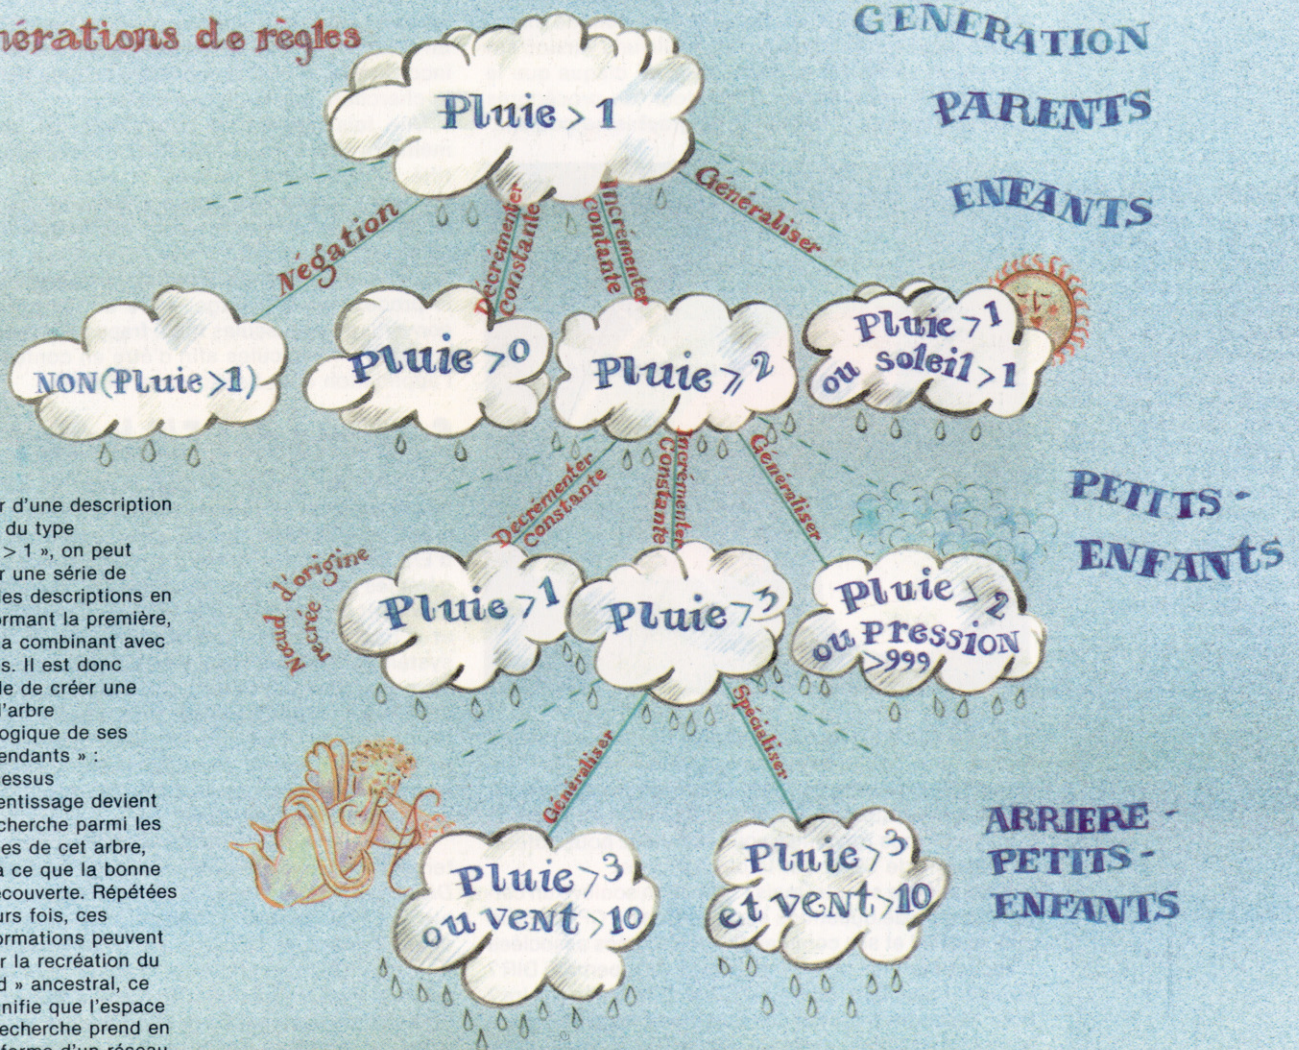 nérations de règles
GENERATION
PARENTS
Pluie > 1
ENFANTS
Négation
Décrémenter
constante
Incrémenter
contante
Généraliser
NON(Pluie >1)
Pluie >0
Pluie ⩾ 2
Pluie >1
ou soleil >1
PETITS -
ENFANTS
Decrémenter
constante
Incrémenter
Constante
Généraliser
Nœud d'origine
recrée
Pluie >1
Pluie >3
Pluie > 2
ou Pression
>999
Généraliser
Spécialiser
ARRIERE -
PETITS -
ENFANTS
Pluie >3
ou vent >10
Pluie >3
et vent >10
r d'une description
du type
> 1 », on peut
r une série de
les descriptions en
ormant la première,
a combinant avec
s. Il est donc
le de créer une
l'arbre
logique de ses
endants » :
essus
entissage devient
cherche parmi les
es de cet arbre,
à ce que la bonne
écouverte. Répétées
urs fois, ces
ormations peuvent
r la recréation du
d » ancestral, ce
gnifie que l'espace
echerche prend en
forme d'un réseau